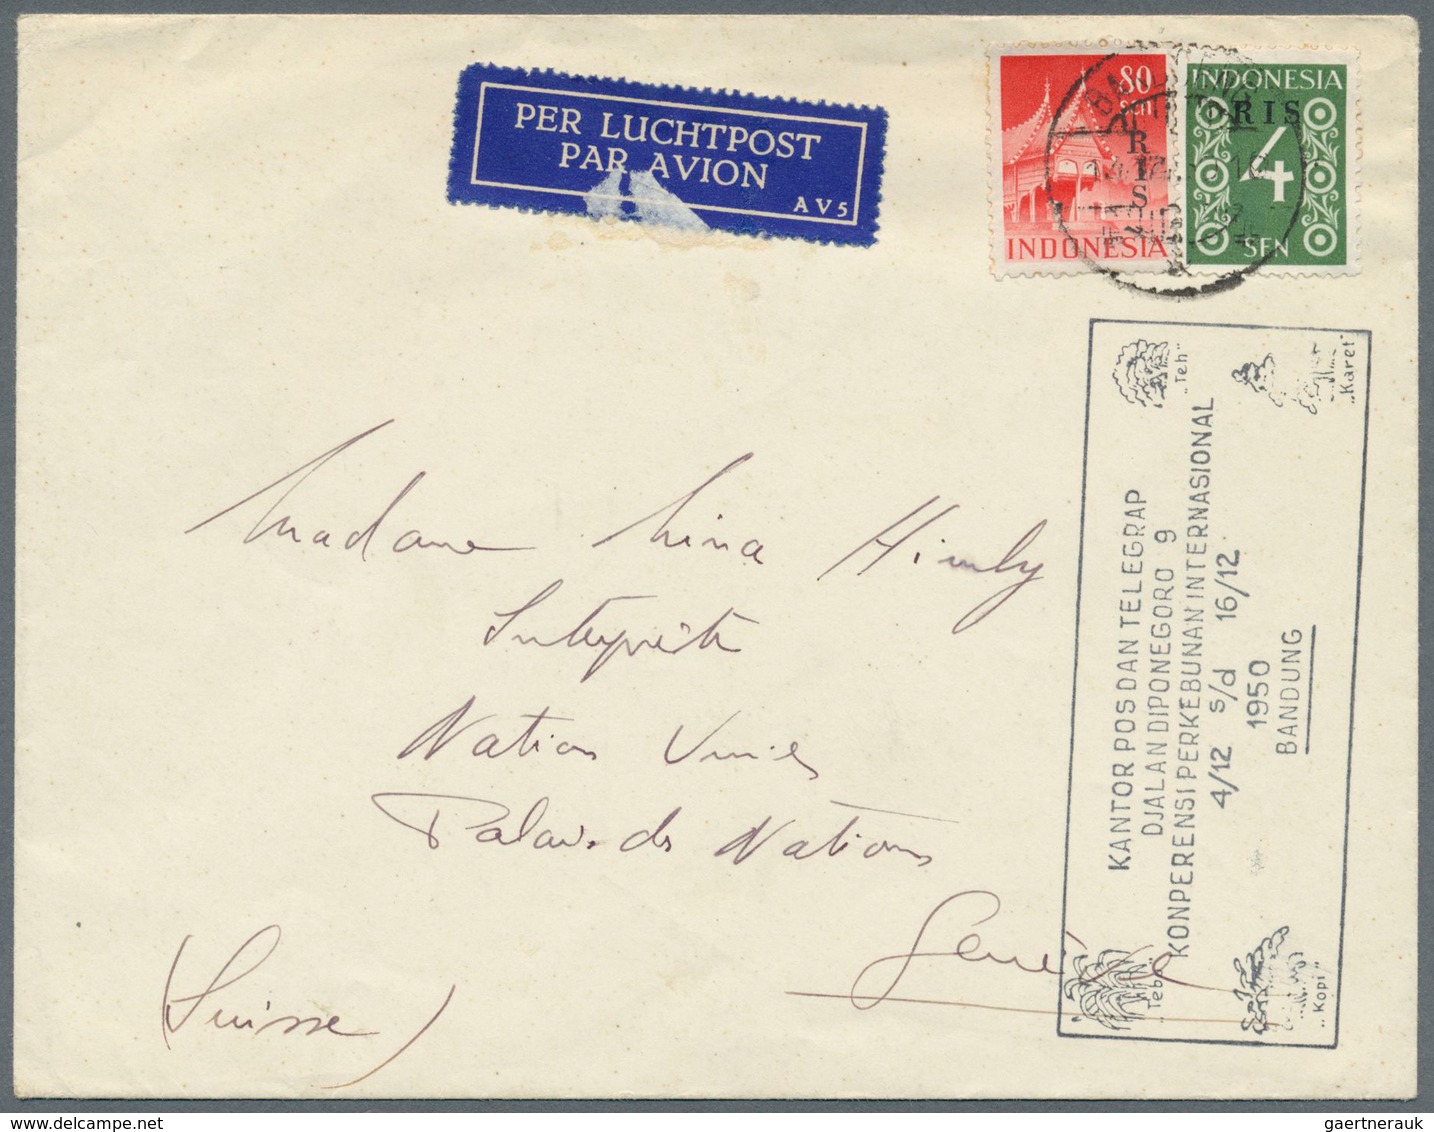 PER LUCHTPOST
PAR AVION
AV5
80
sen
RIS
INDONESIA
INDONESIA
RIS
4
SEN
Madame Nina Himly
Interprète
Nations Unies
Palais des Nations
Genève
(Suisse)
"Teh"
"Karet"
KANTOR POS DAN TELEGRAP
DJALAN DIPONEGORO 9
KONPERENSI PERKEBUNAN INTERNASIONAL
4/12 s/d 16/12
1950
BANDUNG
"Kopi"
www.delcampe.net
gaertnerauk